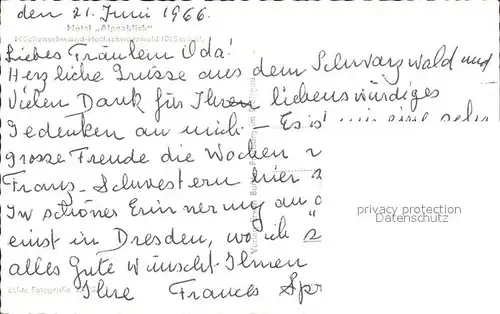 den 21. Juni 1966.
Hotel "Alpenblick"
Höchenschwand-Hochschwarzwald 1015 m ü. M.
Liebes Fräulein Ilda!
Herzliche Grüsse aus dem Schwarzwald und
Vielen Dank für Ihren liebenswürdiges
Gedenken an mich – Es ist mir eine sehr
grosse Freude die Wochen
Franz-Schwestern hier
In schöner Erinnerung an
einst in Dresden, wo ich
alles Gute wünscht Ihnen
Ihre Frances
privacy protection
Datenschutz
Echte Fotografie